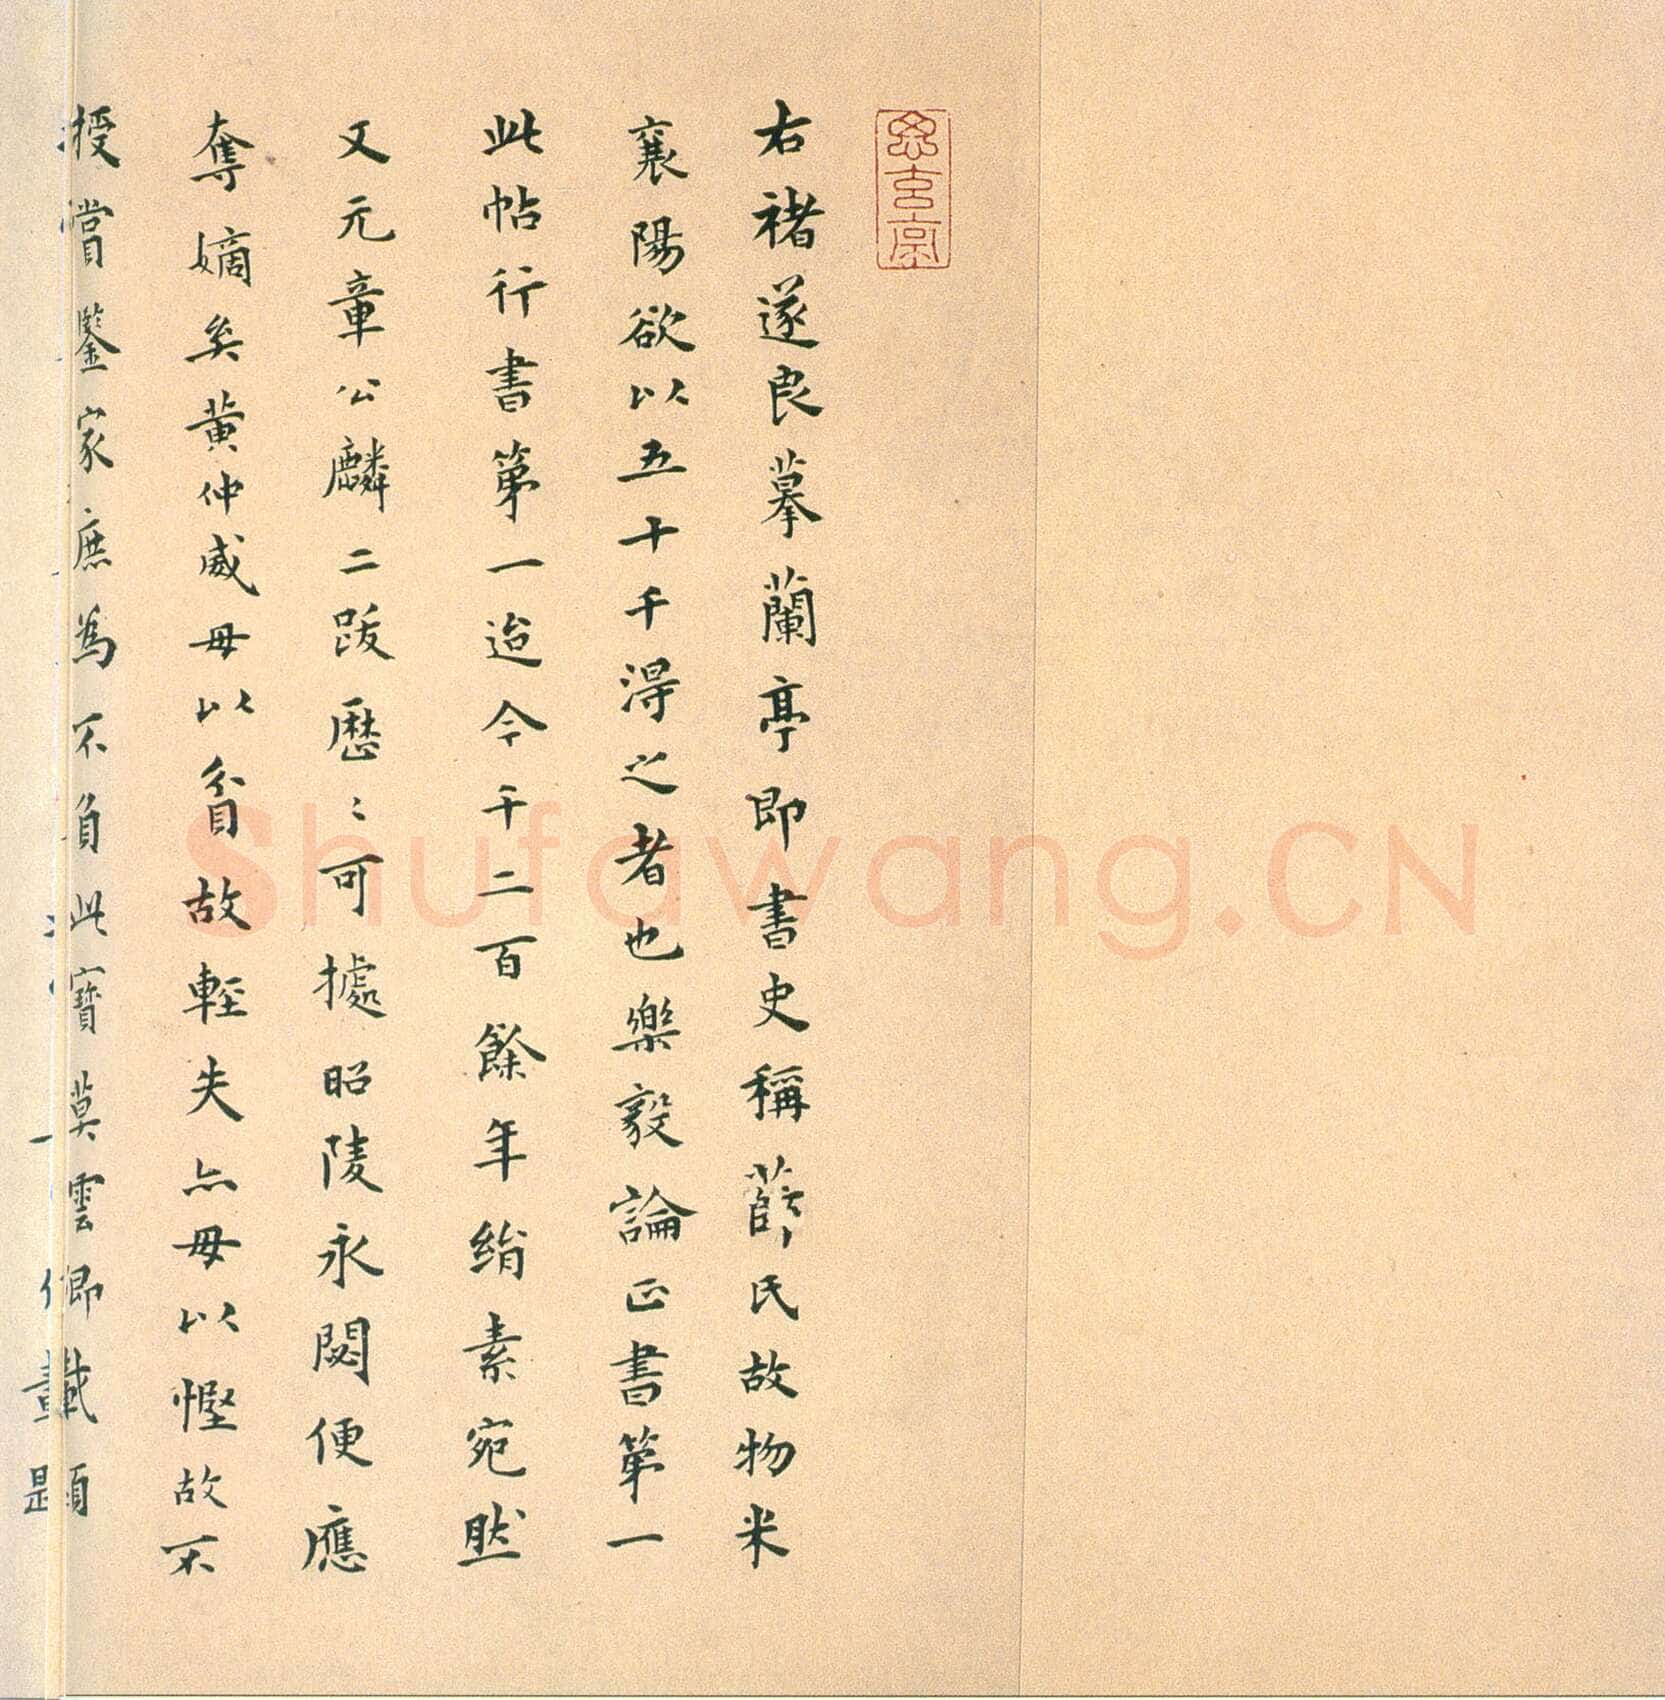 右褚遂良摹蘭亭即書史稱薛氏故物米
襄陽欲以五十千淂之者也樂毅論正書第一
此帖行書第一迨今千二百餘年絹素宛然
又元章公麟二跋歷〻可據昭陵永閟便應
奪嫡矣黄仲威毋以貧故輕失亦毋以慳故不
授賞鑒家庶為不負此寶莫雲卿戴題
Shufawang.CN